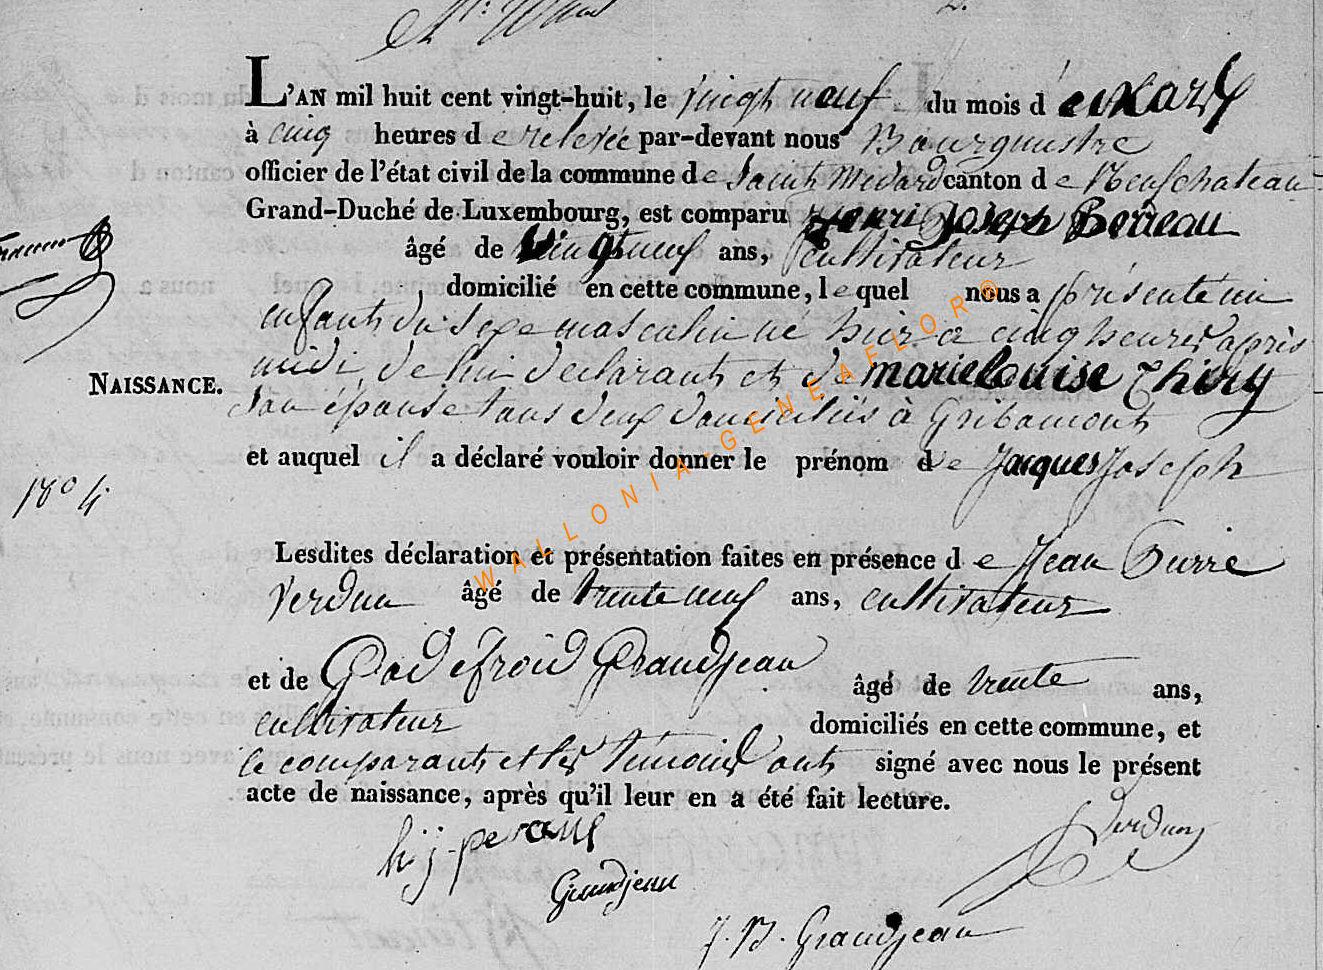 L'AN mil huit cent vingt-huit, le vingt neuf du mois de mars
à cinq heures de relevée par-devant nous Bourgmestre
officier de l'état civil de la commune de Saint Medard canton de Neufchateau
Grand-Duché de Luxembourg, est comparu henri Joseph
âgé de vingt neuf ans, cultivateur
domicilié en cette commune, lequel nous a présenté un
enfant du sexe masculin né hier a cinq heures d'après
midi de lui declarant et de marie louise thiry
son épouse tous deux domiciliés à Gribomont
NAISSANCE.
et auquel il a déclaré vouloir donner le prénom de Jacques Joseph
Lesdites déclaration et présentation faites en présence de Jean
Verdun âgé de trente neuf ans, cultivateur
et de Godefroid Grandjean âgé de trente ans,
cultivateur domiciliés en cette commune, et
le comparant et les témoins ont signé avec nous le présent
acte de naissance, après qu'il leur en a été fait lecture.
Verdun
Grandjean
J. B. Grandjean
WALLONIA-GENEAFLOR®